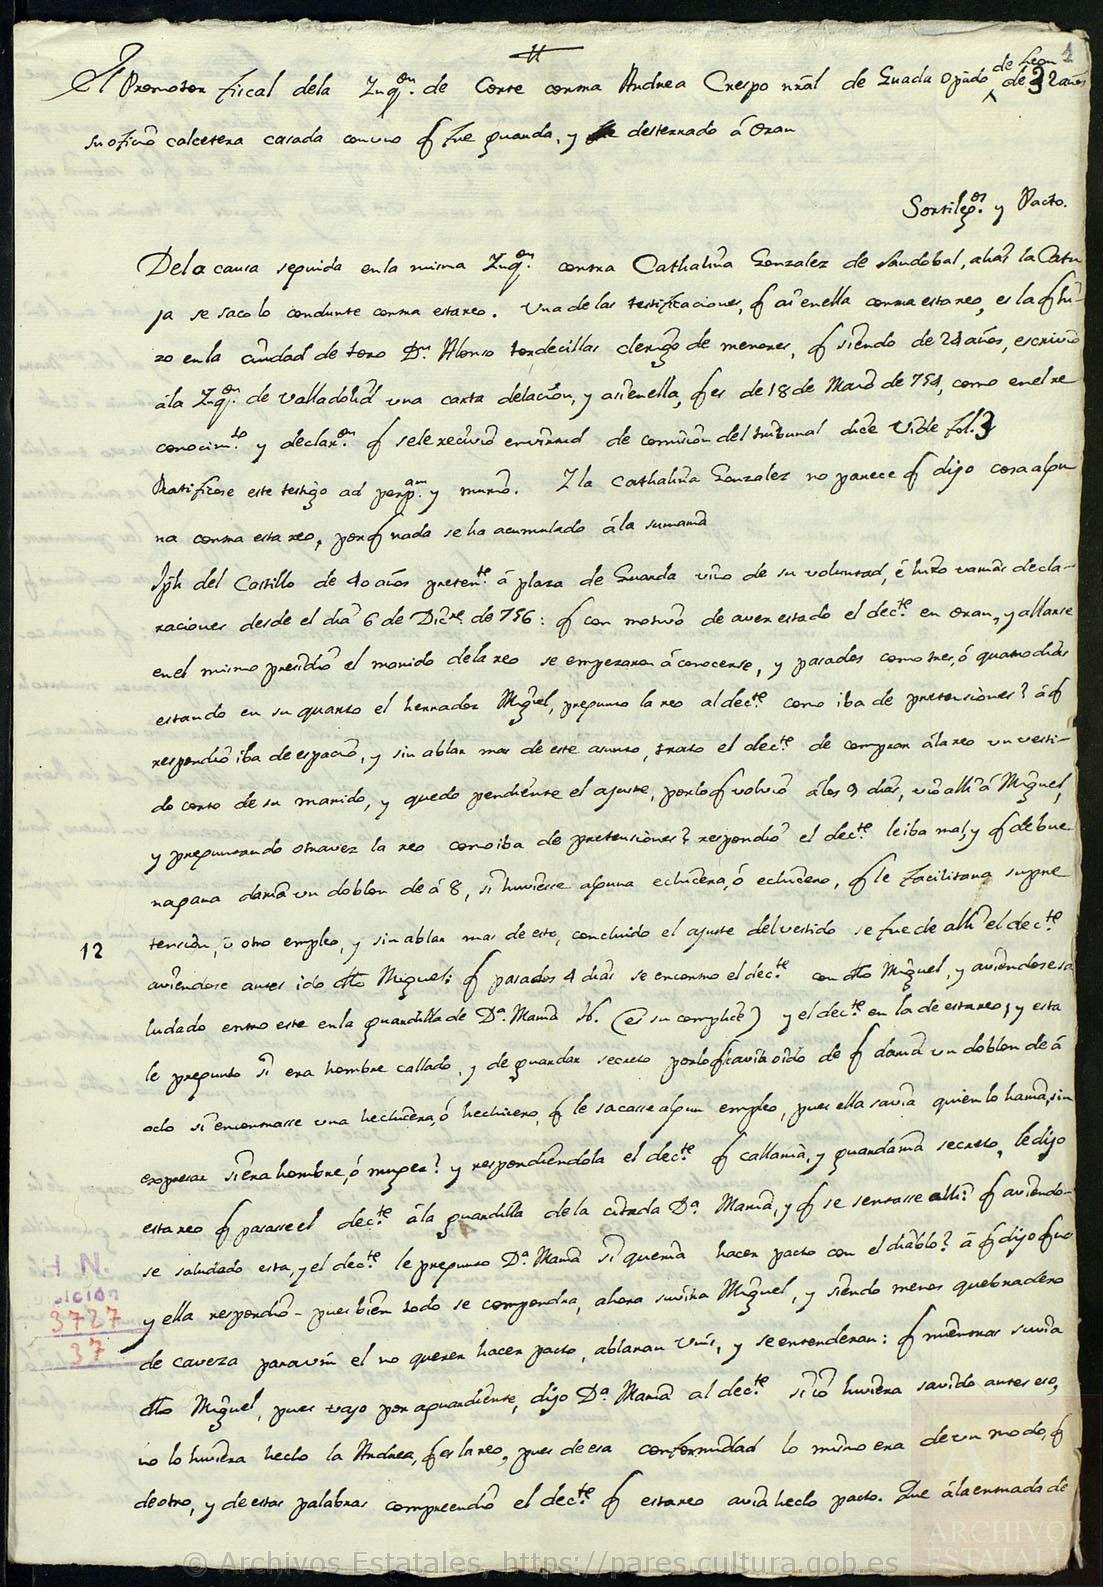 1
El Promotor fiscal dela Inqon. de Corte contra Andrea Crespo nral de Guada Opado de Leon de 32 años
su ofizio calcetera casada con uno q fue guarda, y desterrado á Oran
Sortilegos. y Pacto.
Dela causa seguida enla misma Inqon. contra Cathalina Gonzalez de Sandobal, alias la Catu
ja se saco lo conduzte contra esta reo. Una de las testificaciones, q ai en ella contra esta reo, es la q hi-
zo en la ciudad de toro Dn. Alonso tordecillas clerigo de menores, q siendo de 24 años, escrivio
á la Inqon. de Valladolid una carta delacion, y asi en ella, q es de 18 de Marzo de 754, como en el re
conocimto. y declaron. q sele recivio en virtud de comision del tribunal dice Vide fol. 3
Ratificose este testigo ad perpam. y murio. Y la Cathalina Gonzalez no parece q dijo cosa algu
na contra esta reo, porq nada se ha acumulado á la sumaria
Jph del Castillo de 40 años pretente. á plaza de Guarda vino de su voluntad, é hizo varias decla-
raciones desde el dia 6 de Dicre. de 756: q con motivo de aver estado el decte. en Oran, y allarse
en el mismo presidio el marido dela reo se empezaron á conocerse, y pasados como tres, ó quatro dias
estando en su quarto el herrador Miguel, pregunto la reo al decte. como iba de pretensiones? á q
respondio iba de espacio, y sin ablar mas de este asunto, trato el decte. de comprar á la reo un vesti-
do corto de su marido, y quedo pendiente el ajuste, por lo q volvio á los 9 dias, vio alli á Miguel,
y preguntando otra vez la reo como iba de pretensiones? respondio el decte. le iba mal, y q de bue
na gana daria un doblon de á 8, si huviesse alguna echicera, ó echicero, q le facilitara su pre
tension, ú otro empleo, y sin ablar mas de esto, concluido el ajuste del vestido se fue de alli el decte.
12
aviendose antes ido dho Miguel: q pasados 4 dias se encontro el decte. con dho Miguel, y aviendose sa
ludado entro este en la guardilla de Da. Maria N. (es su complice) y el decte. en la de esta reo, y esta
le pregunto si era hombre callado, y de guardar secreto por lo q avia oido de q daria un doblon de á
ocho si encontrasse una hechicera, ó hechicero, q le sacasse algun empleo, pues ella savia quien lo haria, sin
expresar si era hombre, ó muger? y respondiendola el decte. q callaria, y guardaria secreto, le dijo
esta reo q pasasse el decte. á la guardilla de la citada Da. Maria, y q se sentasse alli: q aviendo-
se saludado esta, y el decte. le pregunto Da. Maria si queria hacer pacto con el diablo? á q dijo q no
y ella respondio - pues bien todo se compondra, ahora subira Miguel, y siendo menos quebradero
de caveza para vm el no querer hacer pacto, ablaran Vms, y se entenderan: q mientras suvia
dho Miguel, pues vajo por aguardiente, dijo Da. Maria al decte. si io huviera savido antes eso,
no lo huviera hecho la Andrea, q es la reo, pues de esa conformidad lo mismo era de un modo, q
de otro, y de estas palabras comprendio el decte. q esta reo avia hecho pacto. Que á la entrada de
H. N.
3727
37
ARCHIVOS
ESTATALES
© Archivos Estatales, https://pares.cultura.gob.es